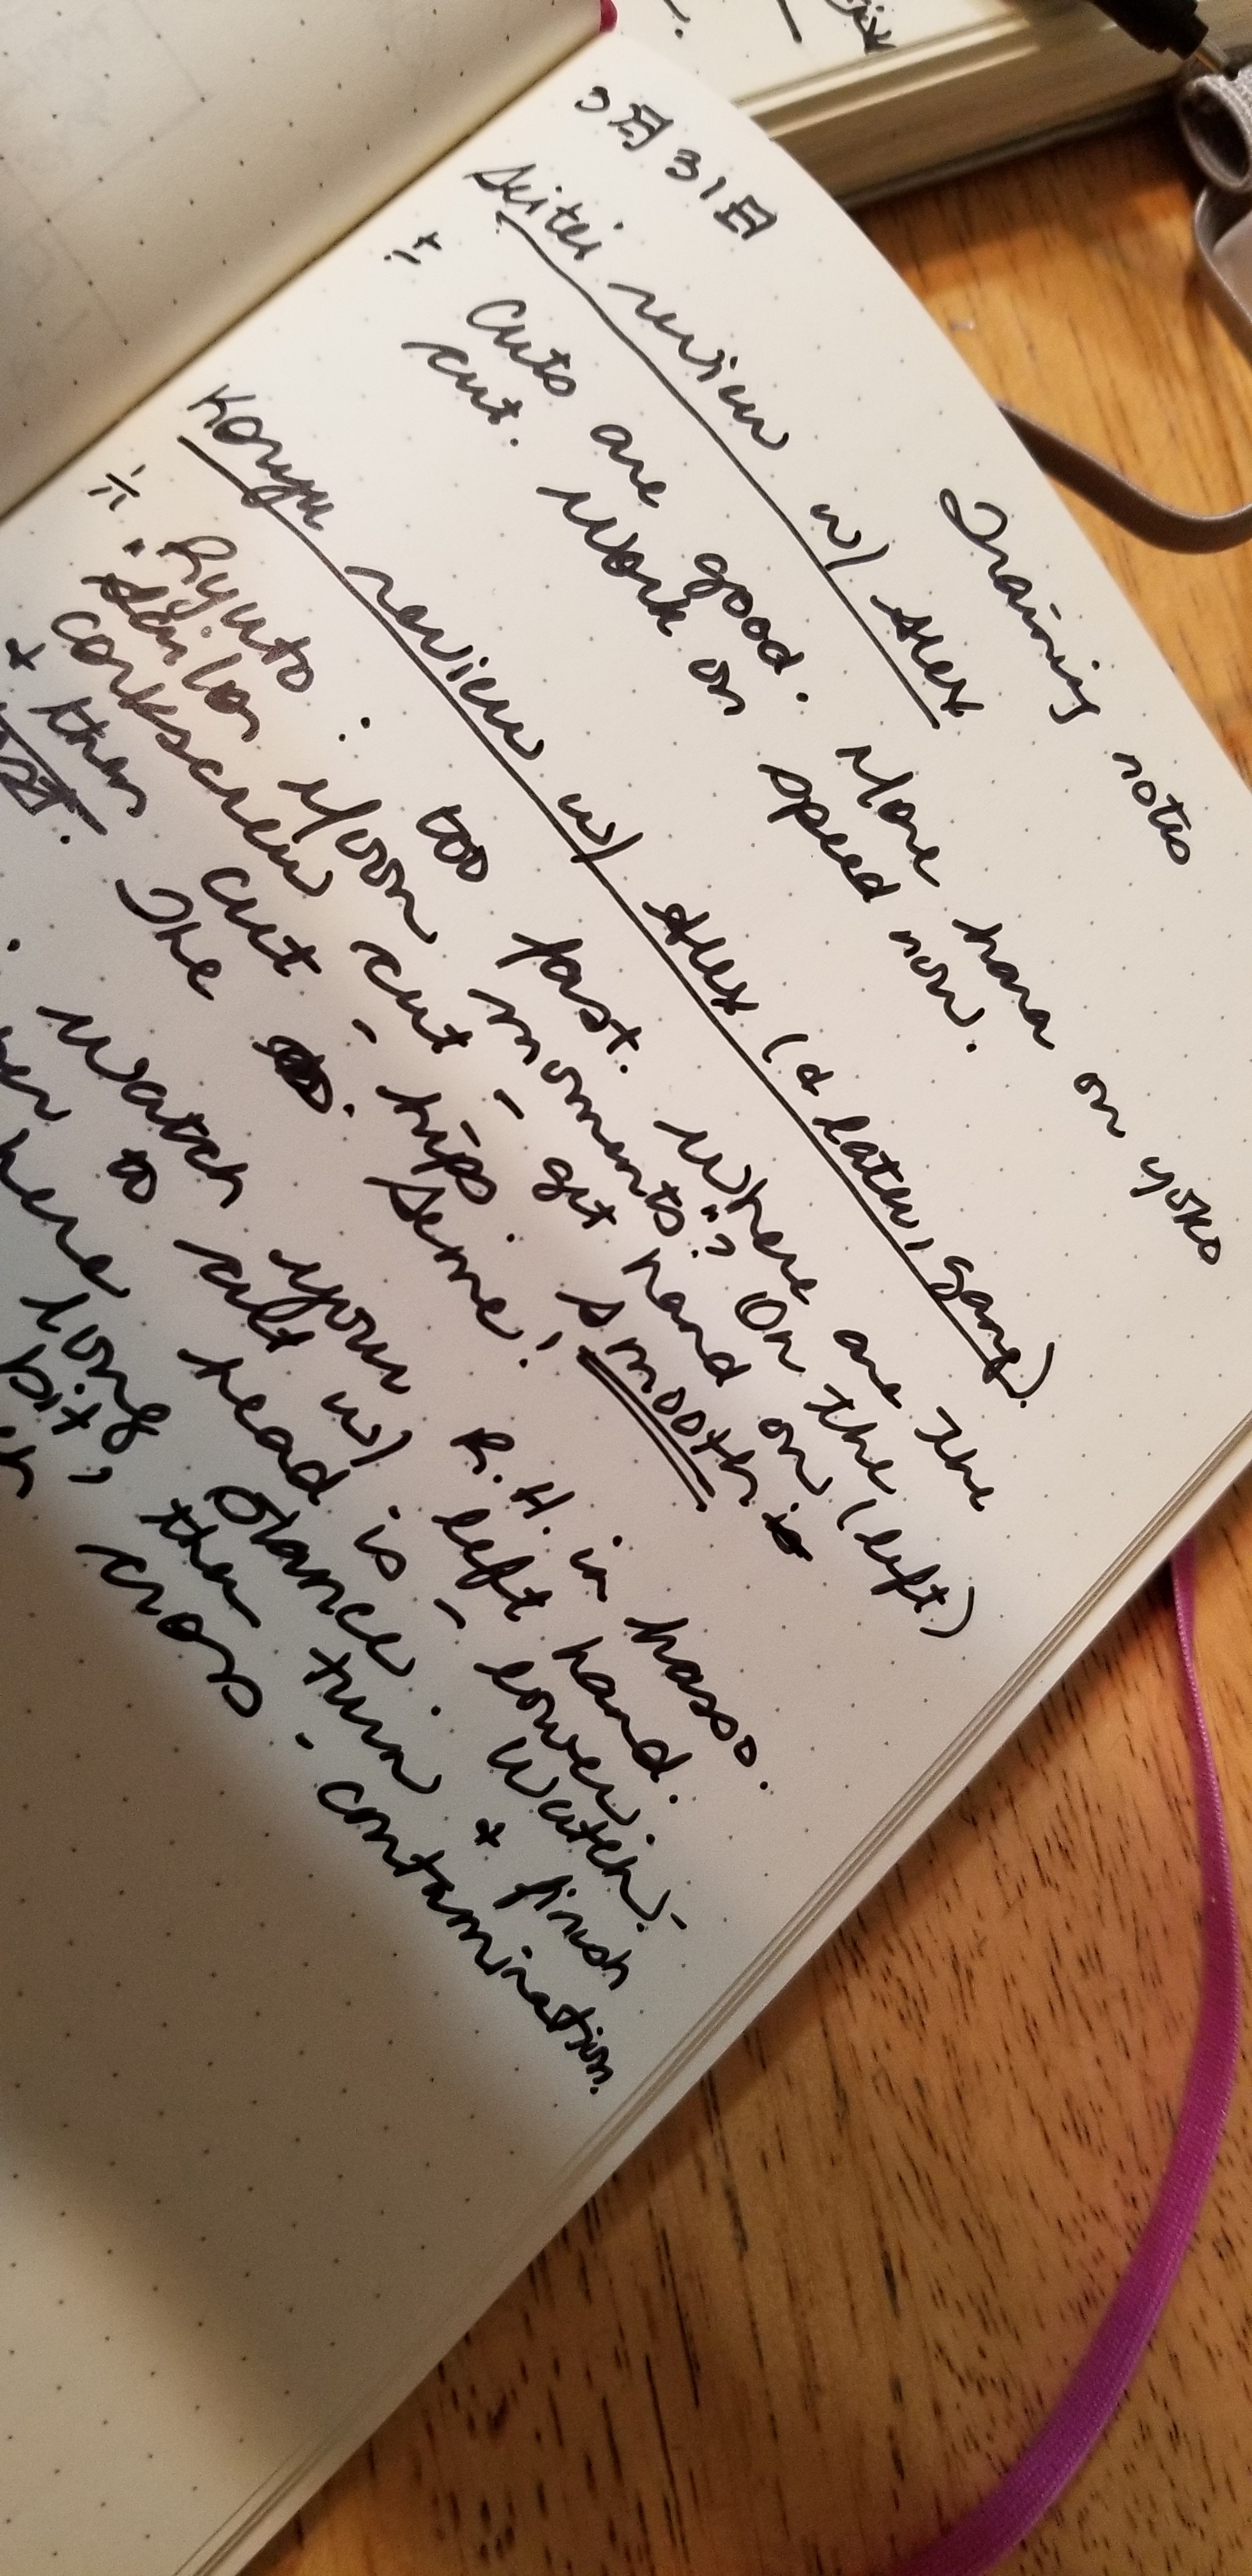 3月31日
Training notes
Seitei review w/ Alex
Cuts are good. More hara on yoko
cut. Work on speed now.
Koryu review w/ Alex (& later, gang)
Ryuto: too fast. Where are the
"Sailor Moon moments"? On the
corkscrew cut - get hand on (left)
+ then cut - hips. smooth is
The seme!
Watch your R.H. in hasso.
to cut w/ left hand.
head is - lower.
long stance. Watch-
bit, then turn + finish
cross - contamination.